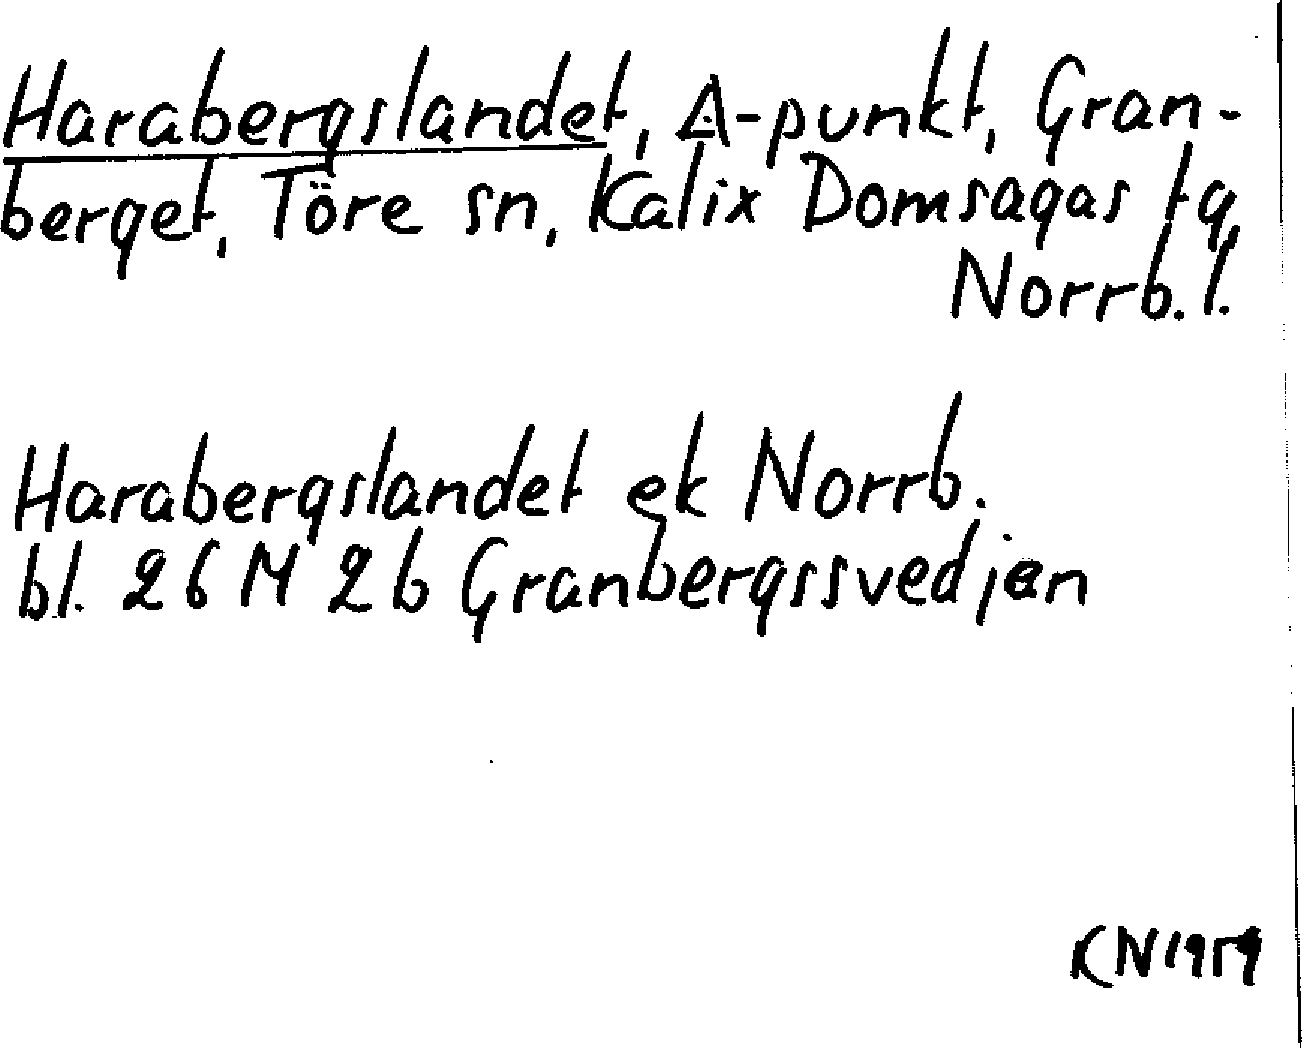 Harabergslandet, Δ-punkt, Gran-
berget, Töre sn, Kalix Domsagas tg,
Norrb. l.
Harabergslandet ek Norrb.
bl. 26 M 2b Granbergssvedjan
KN 1959